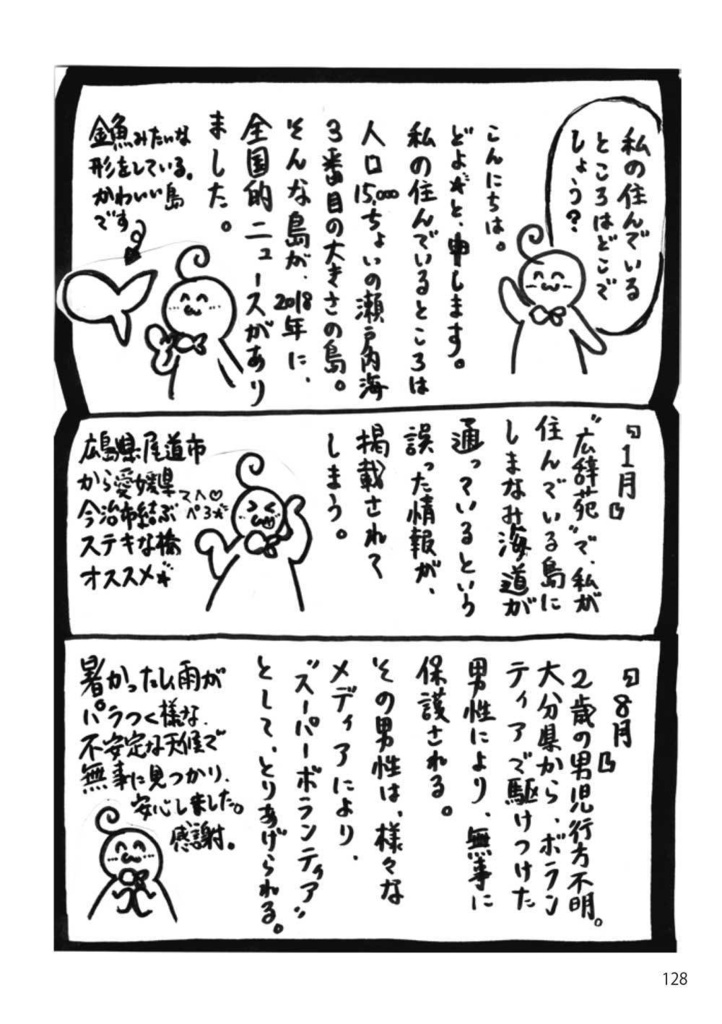 私の住んでいる
ところはどこで
しょう？
こんにちは。
どよ☆と、申します。
私の住んでいるところは
人口15,000ちょいの瀬戸内海
3番目の大きさの島。
そんな島が、2018年に、
全国的ニュースがあり
ました。
金魚みたいな
形をしている。
かわいい島
です
『1月』
"広辞苑"で、私が
住んでいる島に
しまなみ海道が
通っているという
誤った情報が、
掲載されて
しまう。
テヘ♡
ペロ☆
広島県尾道市
から愛媛県
今治市結ぶ
ステキな橋
オススメ☆
『8月』
2歳の男児行方不明。
大分県から、ボラン
ティアで駆けつけた
男性により、無事に
保護される。
その男性は、様々な
メディアにより、
"スーパーボランティア"
として、とりあげられる。
暑かったり、雨が
パラつく様な、
不安定な天候で
無事に見つかり、
安心しました。
感謝。
128